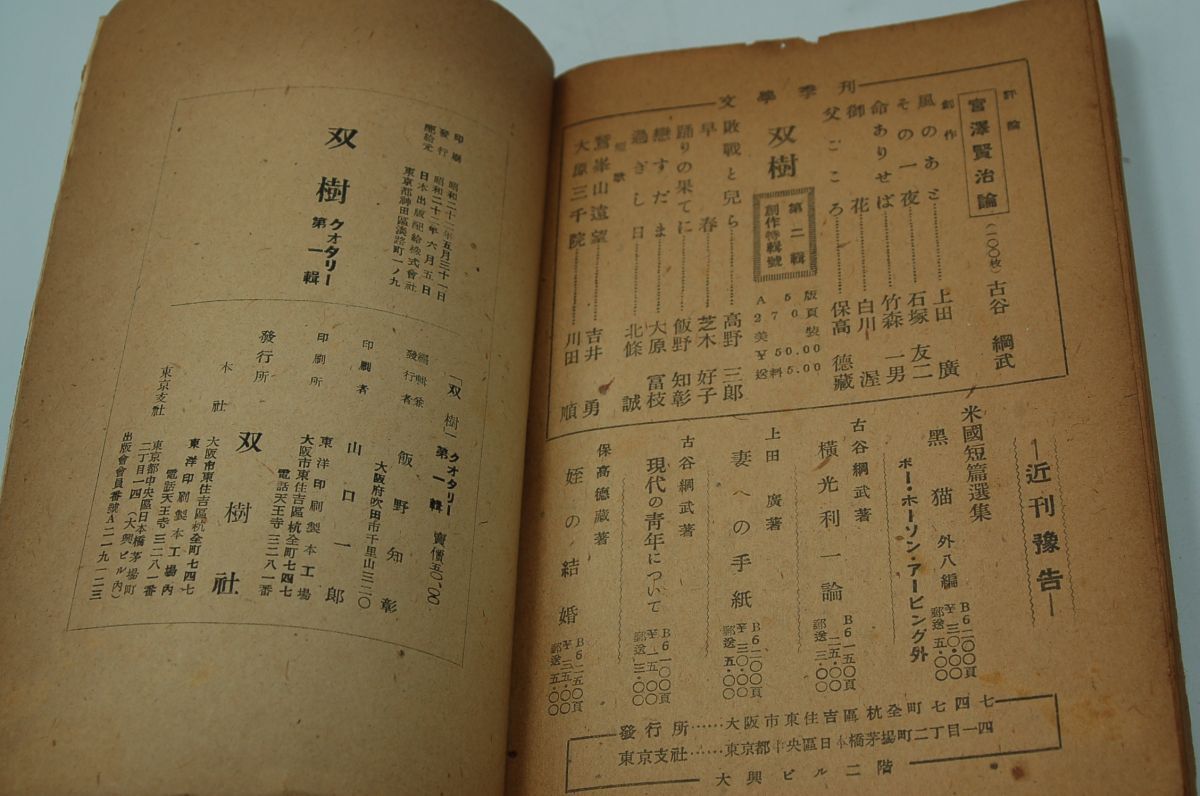 文學季刊
双樹
第二輯
創作特輯號
A5版
270頁
美装
¥50.00
送料5.00
評論
宮澤賢治論(一〇〇枚)古谷綱武
創作
風のあと……上田廣
その一夜……石塚友二
命ありせば……竹森一男
御花……白川渥
父ごころ……保高德藏
敗戰と兒ら……高野三郎
早春……芝木好子
踊りの果てに……飯野知彰
戀すだま……大原富枝
過ぎし日……北條誠
短歌
鷲峯山遠望……吉井勇
大原三千院……川田順
―近刊豫告―
米國短篇選集
黑猫 外八編 B6二〇〇頁 ¥三〇・〇〇 郵送五・〇〇
ポー・ホーソン・アービング外
古谷綱武著
橫光利一論 B6一五〇頁 二五・〇〇 郵送三・〇〇
上田廣著
妻への手紙 B6二〇〇頁 ¥三〇・〇〇 郵送五・〇〇
古谷綱武著
現代の靑年について B6一〇〇頁 ¥一五・〇〇 郵送三・〇〇
保高德藏著
姪の結婚 B6二五〇頁 ¥三五・〇〇 郵送五・〇〇
發行所……大阪市東住吉區杭全町七四七
東京支社……東京都中央區日本橋茅場町二丁目一四
大興ビル二階
印刷 昭和二十二年五月三十一日
發行 昭和二十二年六月五日
配給元 日本出版配給株式會社
東京都神田區淡路町一ノ九
双樹 クォタリー 第一輯
「双樹」クォタリー 第一輯 賣價五〇、〇〇
編輯兼發行者 飯野知彰
大阪府吹田市千里山三二〇
印刷者 山口一郎
印刷所 東洋印刷製本工場
大阪市東住吉區杭全町七四七
電話天王寺三二八一番
發行所 双樹社
本社 大阪市東住吉區杭全町七四七
東洋印刷製本工場內
電話天王寺三二八一番
東京支社 東京都中央區日本橋茅場町
二丁目一四(大興ビル內)
出版會會員番號A二一九一二三